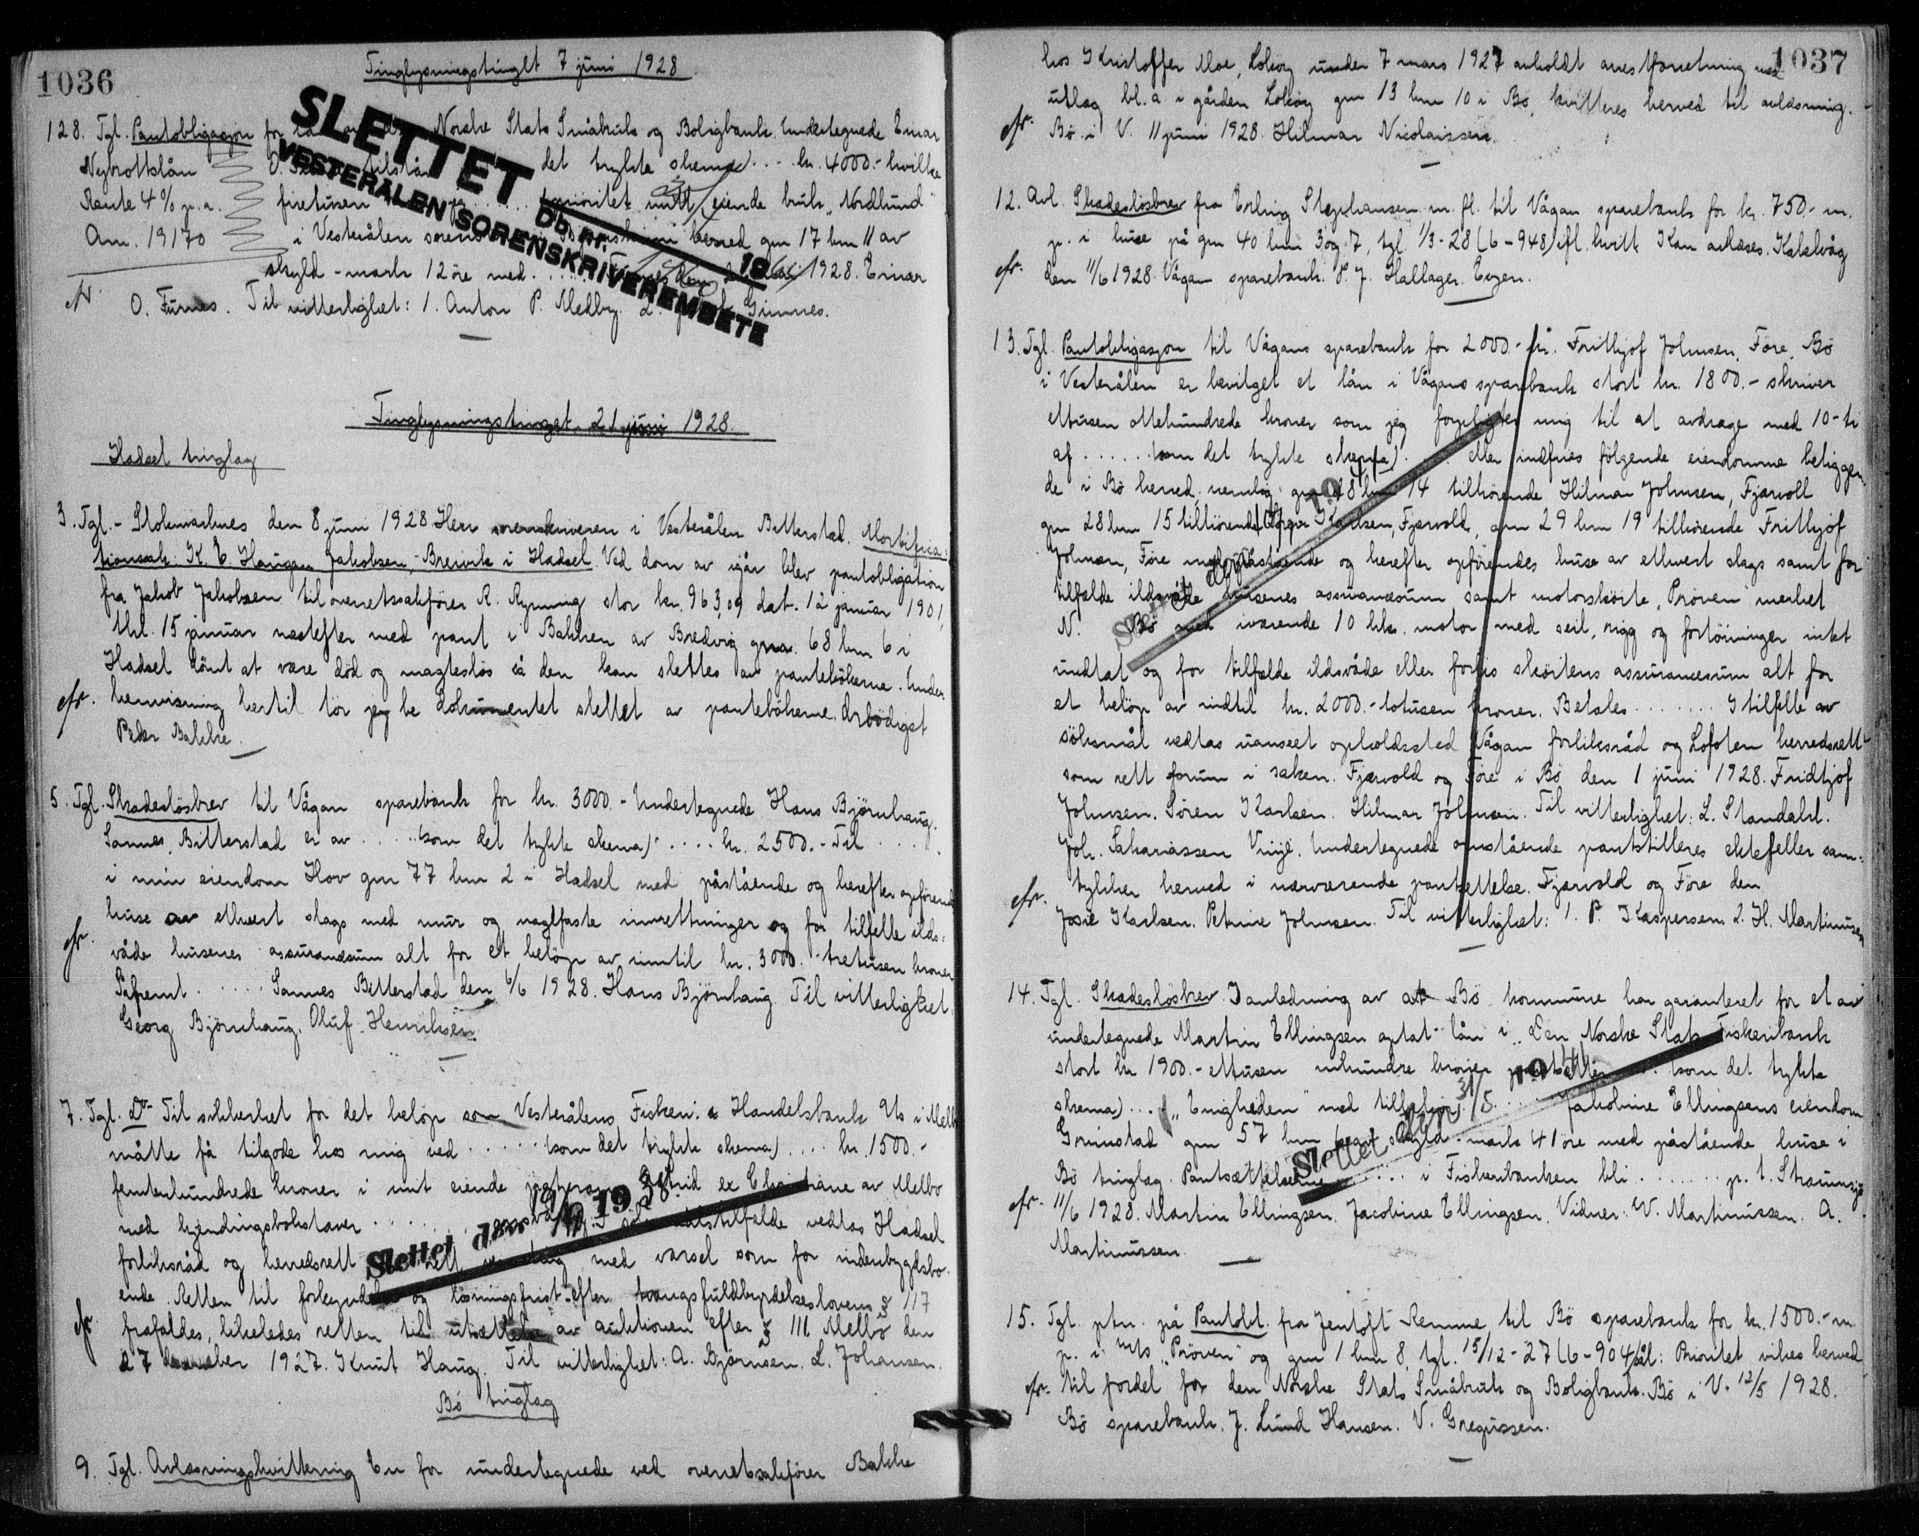 1036
Tinglysningstinget 7 juni 1928
128. Tgl. Pantobligasjon for lån Norske Stats Småbruk og Boligbank. Undertegnede Einar
Nybrottslån O. det trykte skema) ... kr. 4000.- hvilke
Rente 4% p.a. firetusen prioritet mitt eiende bruk "Nordlund"
Am. 19170 i Vesterålen herred gnr 17 bnr 11 av
skyld-mark 12 øre med 1928. Einar
cfr. O. Furnes. Til vitterlighet: 1. Anton P. Melby. 2. Ginnes.
SLETTET
Db nr. 19
VESTERÅLEN SORENSKRIVEREMBETE
Tinglysningstinget 21 juni 1928.
Hadsel tinglag
3. Tgl.- Stokmarknes den 8 juni 1928. Herr sorenskriveren i Vesterålen Bitterstad. Mortifica-
tionssak: K. E. Haugan Jakobsen, - Breivik i Hadsel. Ved dom av igår blev pantobligation
fra Jakob Jakobsen til overretssakfører R. Rynning stor kr. 963,09 dat. 12 januar 1901,
thl. 15 januar næstefter med pant i Bakken av Bredvig gnr. 68 bnr 6 i
Hadsel kjent at være død og magtesløs så den kan slettes av pantebøkerne. Under
cfr. henvisning hertil tør jeg be dokumentet slettet av pantebøkerne. Ærbødigst
Peder Bakke.
5. Tgl. Skadesløsbrev til Vågan sparebank for kr. 3000.- Undertegnede Hans Bjørnhaug.
Sannes, Bitterstad er av .... (som det trykte skema) .... kr. 2500.- Til ....
i min eiendom Hov gnr 77 bnr 2 i Hadsel med påstående og herefter opførende
huse av ethvert slags med mur og naglfaste innrettninger og for tilfelle ilds-
cfr. våde husenes assuransesum alt for et beløp av inntil kr. 3000.- tretusen kroner
Såfremt ..... Sannes Bitterstad den 6/6 1928. Hans Bjørnhaug. Til vitterlighet.
Georg Bjørnhaug. Oluf Henriksen.
7. Tgl. do- Til sikkerhet for det beløp som Vesterålens Fiskeri & Handelsbank A/s i Melbo
måtte få tilgode hos mig ved ..... (som det trykte skema) .... kr. 1500.-
femtenhundrede kroner i mit eiende ex av Melbo
med kjendingsbokstaver ....... vedtas Hadsel
forliksråd og herredsrett med varsel som for indenbygdsbo-
ende. Retten til og løsningsfrist efter tvangsfuldbyrdelseslovens § 117
cfr. frafaldes, likeledes retten til utsættelse av auktionen efter § 111 Melbo den
27 1927. Knut Haug. Til vitterlighet: A. Bjørnsen. L. Johansen.
Slettet den 19/9 1938
Bø tinglag
9. Tgl. Avlæsningskvittering En for undertegnede ved overretssakfører Bakke
1037
hos Kristoffer Moe, Lokøy under 7 mars 1927 avholdt arrestforretning med
utlæg bl.a. i gården Lokøy gnr 13 bnr 10 i Bø, kvitteres herved til avlæsning.
cfr. Bø i V. 11 juni 1928. Hilmar Nicolaissen.
12. Avl. Skadesløsbrev fra Erling Stephansen m. fl. til Vågan sparebank for kr. 750,- m.
p. i huse på gnr 40 bnr 3 og 7, tgl. 1/3-28 (6-948) ifl. kvitt. Kan avlæses. Kabelvåg
cfr. den 11/6 1928. Vågan sparebank. P. J. Hallager. Evjen.
13. Tgl. Pantobligasjon til Vågans sparebank for 2000.- kr. Frithjof Johnsen, Føre, Bø
i Vesterålen er bevilget et lån i Vågans sparebank stort kr. 1800.- skriver
ettusen ottehundrede kroner som jeg forpligter mig til at avdrage med 10-ti
af ....... (som det trykte skema) .... eller indfries følgende eiendomme beliggen-
de i Bø herred nemlig: gnr 28 bnr 14 tilhørende Hilmar Johnsen, Fjærvoll
gnr 28 bnr 15 tilhørende Karlsen, Fjærvold, gnr 29 bnr 19 tilhørende Frithjof
Johnsen, Føre med påstående og herefter opførendes huse av ethvert slags samt for
tilfælde ildsvåde husenes assurancesum samt motorskøite "Prøven" merket
N. Bø med iværende 10 hk. motor med seil, rigg og fortøininger intet
undtat og for tilfælde ildsvåde eller forlis skøitens assurancesum alt for
et beløp av indtil kr. 2000.- totusen kroner. Betales ....... I tilfelle av
søksmål vedtas uanseet opholdssted Vågan forliksråd og Lofoten herredsrett
som rett forum i saken. Fjærvold og Føre i Bø den 1 juni 1928. Fridtjof
Johnsen. Søren Karlsen. Hilmar Johnsen. Til vitterlighet: L. Standahl.
Joh. Sakariassen Vinje. Undertegnede ovnstående pantstilleres ektefeller sam-
tykker herved i nærværende pantsettelse. Fjærvold og Føre den
cfr. Josie Karlsen. Petrine Johnsen. Til vitterlighet: 1. P. Kaspersen 2. H. Martinussen
14. Tgl. Skadesløsbrev I anledning av at Bø kommune har garanteret for et av
undertegnede Martin Ellingsen optat lån i "Den Norske Stats Fiskeribank
stort kr 1900.- ettusen nihundre kroner pantsetter .... (som det trykte
skema) .... "Enigheden" med tilbehør .... Jakobine Ellingsens eiendom
Grimstad gnr 57 bnr skyld mark 41 øre med påstående huse i
Bø tinglag. Pantsættelserne ...... i Fiskeribanken bli ....... p. t. Straumsjø
cfr. 11/6 1928. Martin Ellingsen. Jacobine Ellingsen. Vidner: W. Martinussen. A.
Martinussen.
Slettet den 31/5 1941
15. Tgl. ptn. på Pantobl. fra Jentoft Remme til Bø sparebank for kr. 1500.- m.
p. i M/s "Prøven" og gnr 1 bnr 8, tgl. 15/12-27 (6-904) Prioritet vikes herved
cfr. til fordel for den Norske Stats Småbruk og Boligbank. Bø i V. 12/5 1928.
Bø sparebank. J. Lund Hansen. V. Gregussen.